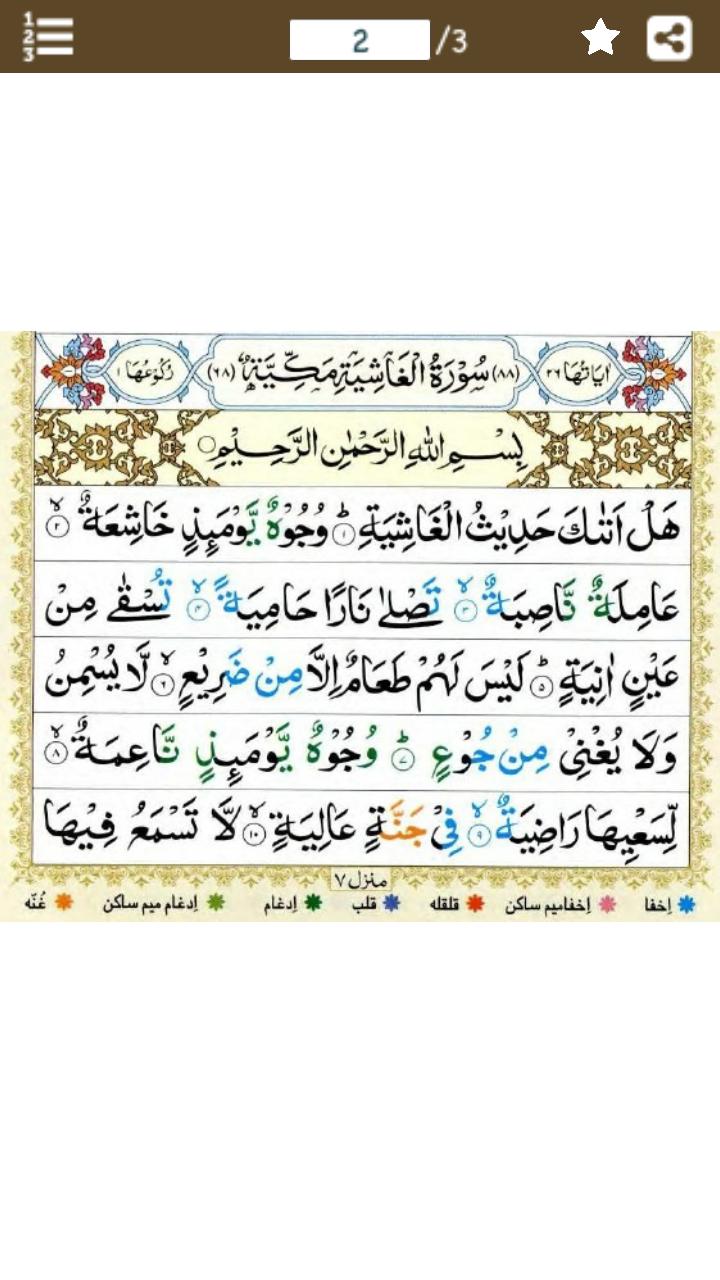 1
2
3
2 /3
اٰیَاتُهَا ٢٦ (٨٨) سُوْرَةُ الْغَاشِيَةِ مَكِّيَّةٌ (٦٨) رُكُوْعُهَا ١
بِسْمِ اللهِ الرَّحْمٰنِ الرَّحِيْمِ
هَلْ اَتٰىكَ حَدِيْثُ الْغَاشِيَةِ ؕ ١ وُجُوْهٌ يَّوْمَىِٕذٍ خَاشِعَةٌ ۙ ٢
عَامِلَةٌ نَّاصِبَةٌ ۙ ٣ تَصْلٰى نَارًا حَامِيَةً ۙ ٤ تُسْقٰى مِنْ
عَيْنٍ اٰنِيَةٍ ؕ ٥ لَيْسَ لَهُمْ طَعَامٌ اِلَّا مِنْ ضَرِيْعٍ ۙ ٦ لَّا يُسْمِنُ
وَلَا يُغْنِیْ مِنْ جُوْعٍ ؕ ٧ وُجُوْهٌ يَّوْمَىِٕذٍ نَّاعِمَةٌ ۙ ٨
لِّسَعْيِهَا رَاضِيَةٌ ۙ ٩ فِیْ جَنَّةٍ عَالِيَةٍ ۙ ١٠ لَّا تَسْمَعُ فِيْهَا
منزل ٧
اِخفا اِخفامیم ساکن قلقله قلب اِدغام اِدغام میم ساکن غُنّه